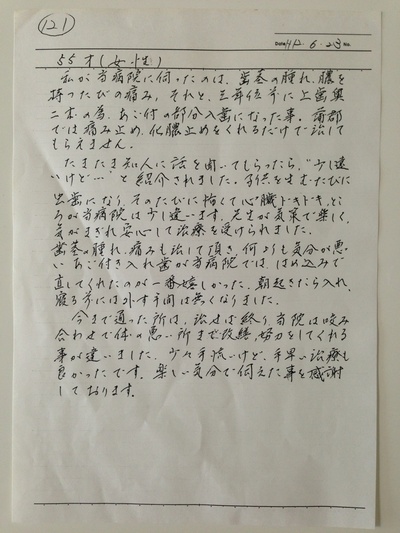 121
Date H12・6・23 No.
55才(女性)
私が当病院に伺ったのは、歯茎の腫れ、膿を
持つたびの痛み、それと、三年位前に上歯奥
二本の為、あご付の部分入歯になった事。蒲郡
では痛み止め、化膿止めをくれるだけで治して
もらえません。
たまたま知人に話を聞いてもらったら、"少し遠
いけど…"と紹介されました。子供を生むたびに
虫歯になり、そのたびに怖くて心臓ドキドキ、とこ
ろが当病院は少し違います。先生が気さくで楽しく、
気がまぎれ安心して治療を受けられました。
歯茎の腫れ、痛みも治して頂き、何よりも気分が悪
いあご付き入れ歯が当病院では、はめ込みで
直してくれたのが一番嬉しかった。朝起きたら入れ、
寝る前には外す手間は無くなりました。
今まで通った所は、治せば終り当院は咬み
合わせで体の悪い所まで改善、努力をしてくれる
事が違いました。少々手流いけど、手早い治療も
良かったです。楽しい気分で伺えた事を感謝
しております。